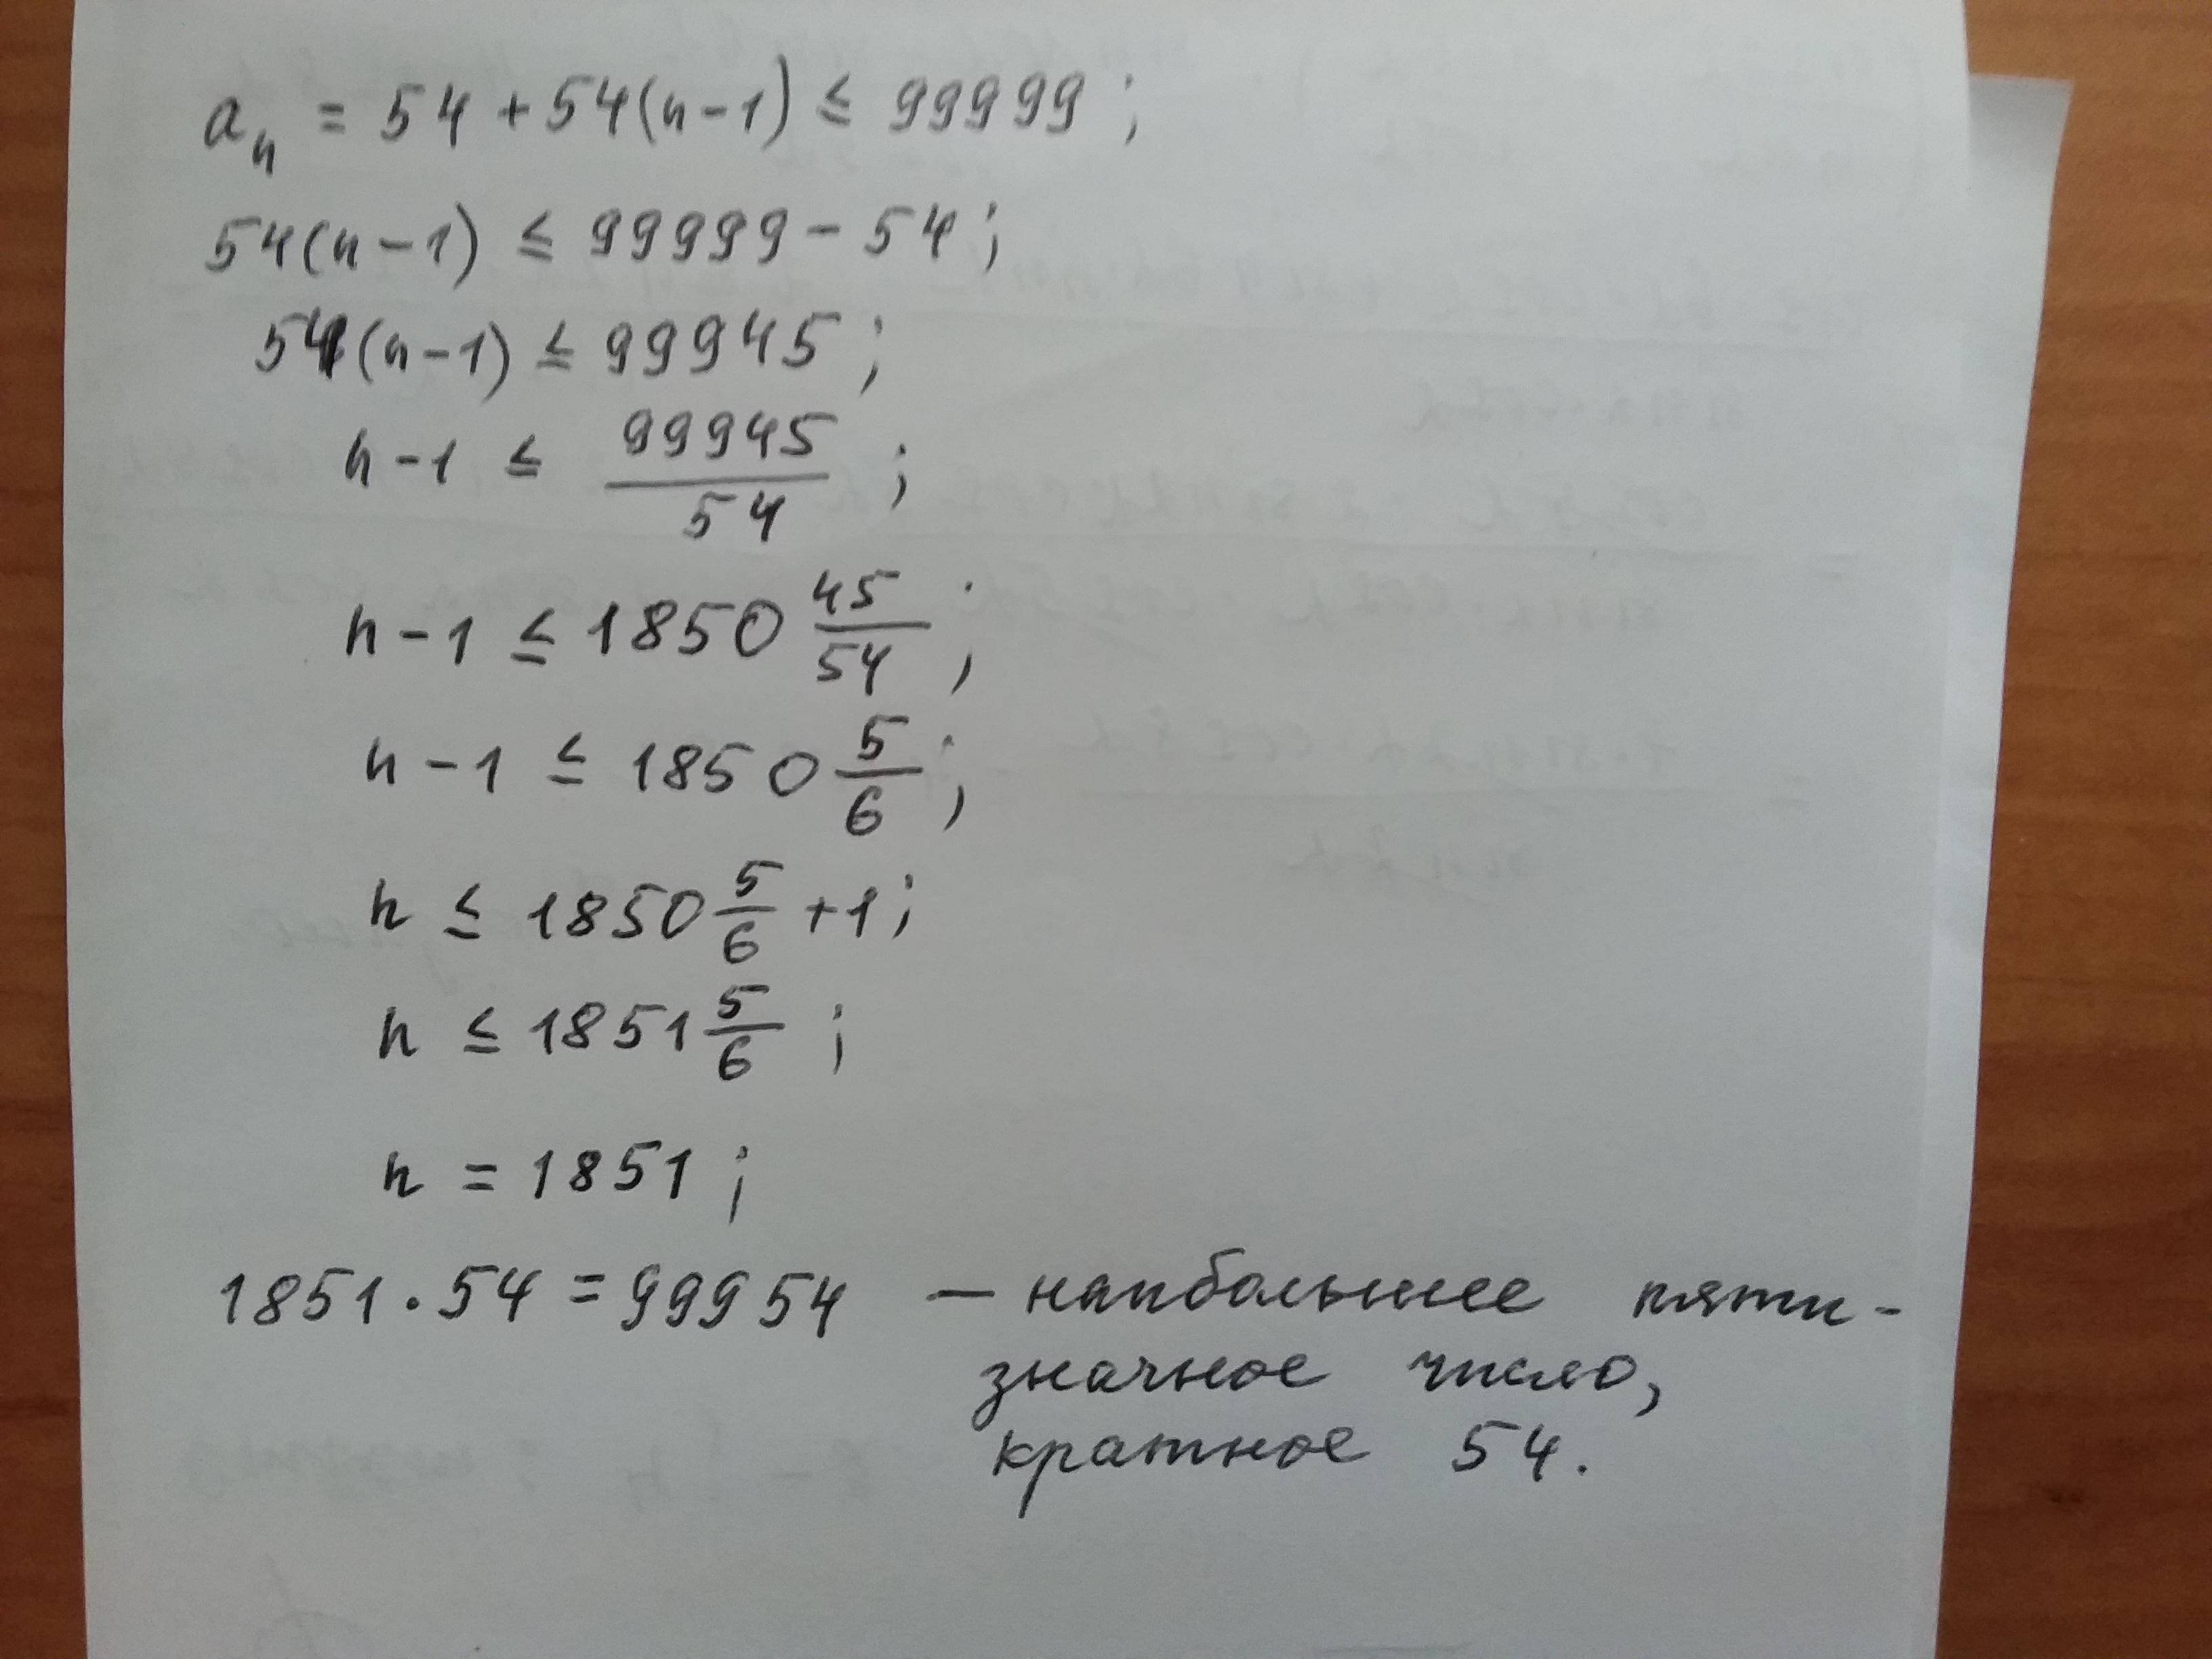 aₙ = 54 + 54(n-1) ≤ 99999 ;
54(n-1) ≤ 99999 - 54 ;
54(n-1) ≤ 99945 ;
n-1 ≤ 99945/54 ;
n-1 ≤ 1850 45/54 ;
n-1 ≤ 1850 5/6 ;
n ≤ 1850 5/6 + 1 ;
n ≤ 1851 5/6 ;
n = 1851 ;
1851 · 54 = 99954 — наибольшее пяти-
значное число,
кратное 54.